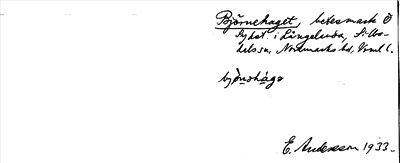 Björnehaget, betesmark Ö
i Långelunda, Silbo-
dals sn, Nordmarks hd, Vrml l.
bjö̀ns̱hàgə
E. Andersson 1933.